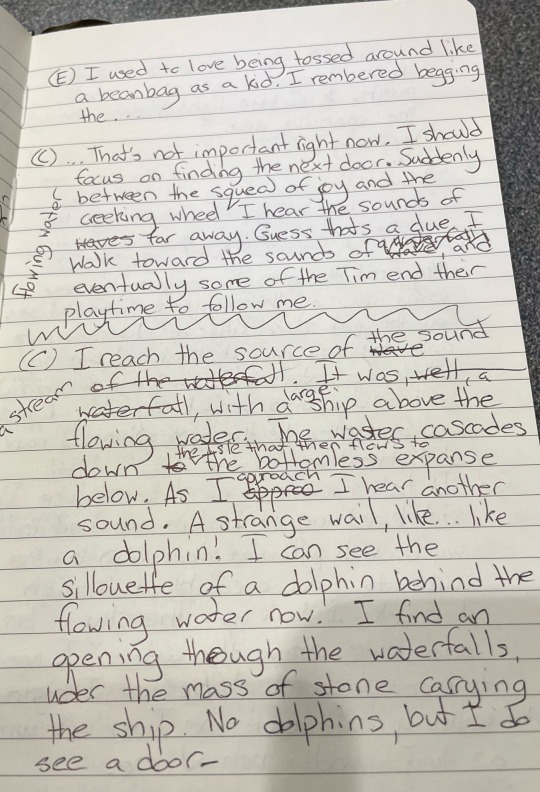 (E) I used to love being tossed around like
a beanbag as a kid. I rembered begging
the...
(C) ...That's not important right now. I should
focus on finding the next door. Suddenly
between the squeal of joy and the
creeking wheel I hear the sounds of
flowing water
waves far away. Guess thats a clue. I
walk toward the sounds of waterfall, and
eventually some of the Tim end their
playtime to follow me.
(C) I reach the source of the sound
wave
a stream
of the waterfall. It was, well, a
waterfall, with a large ship above the
flowing water. The water cascades
down to the isle that then flows to
the bottomless expanse
below. As I approach I hear another
sound. A strange wail, like... like
a dolphin! I can see the
sillouette of a dolphin behind the
flowing water now. I find an
opening though the waterfalls,
uder the mass of stone carrying
the ship. No dolphins, but I do
see a door-